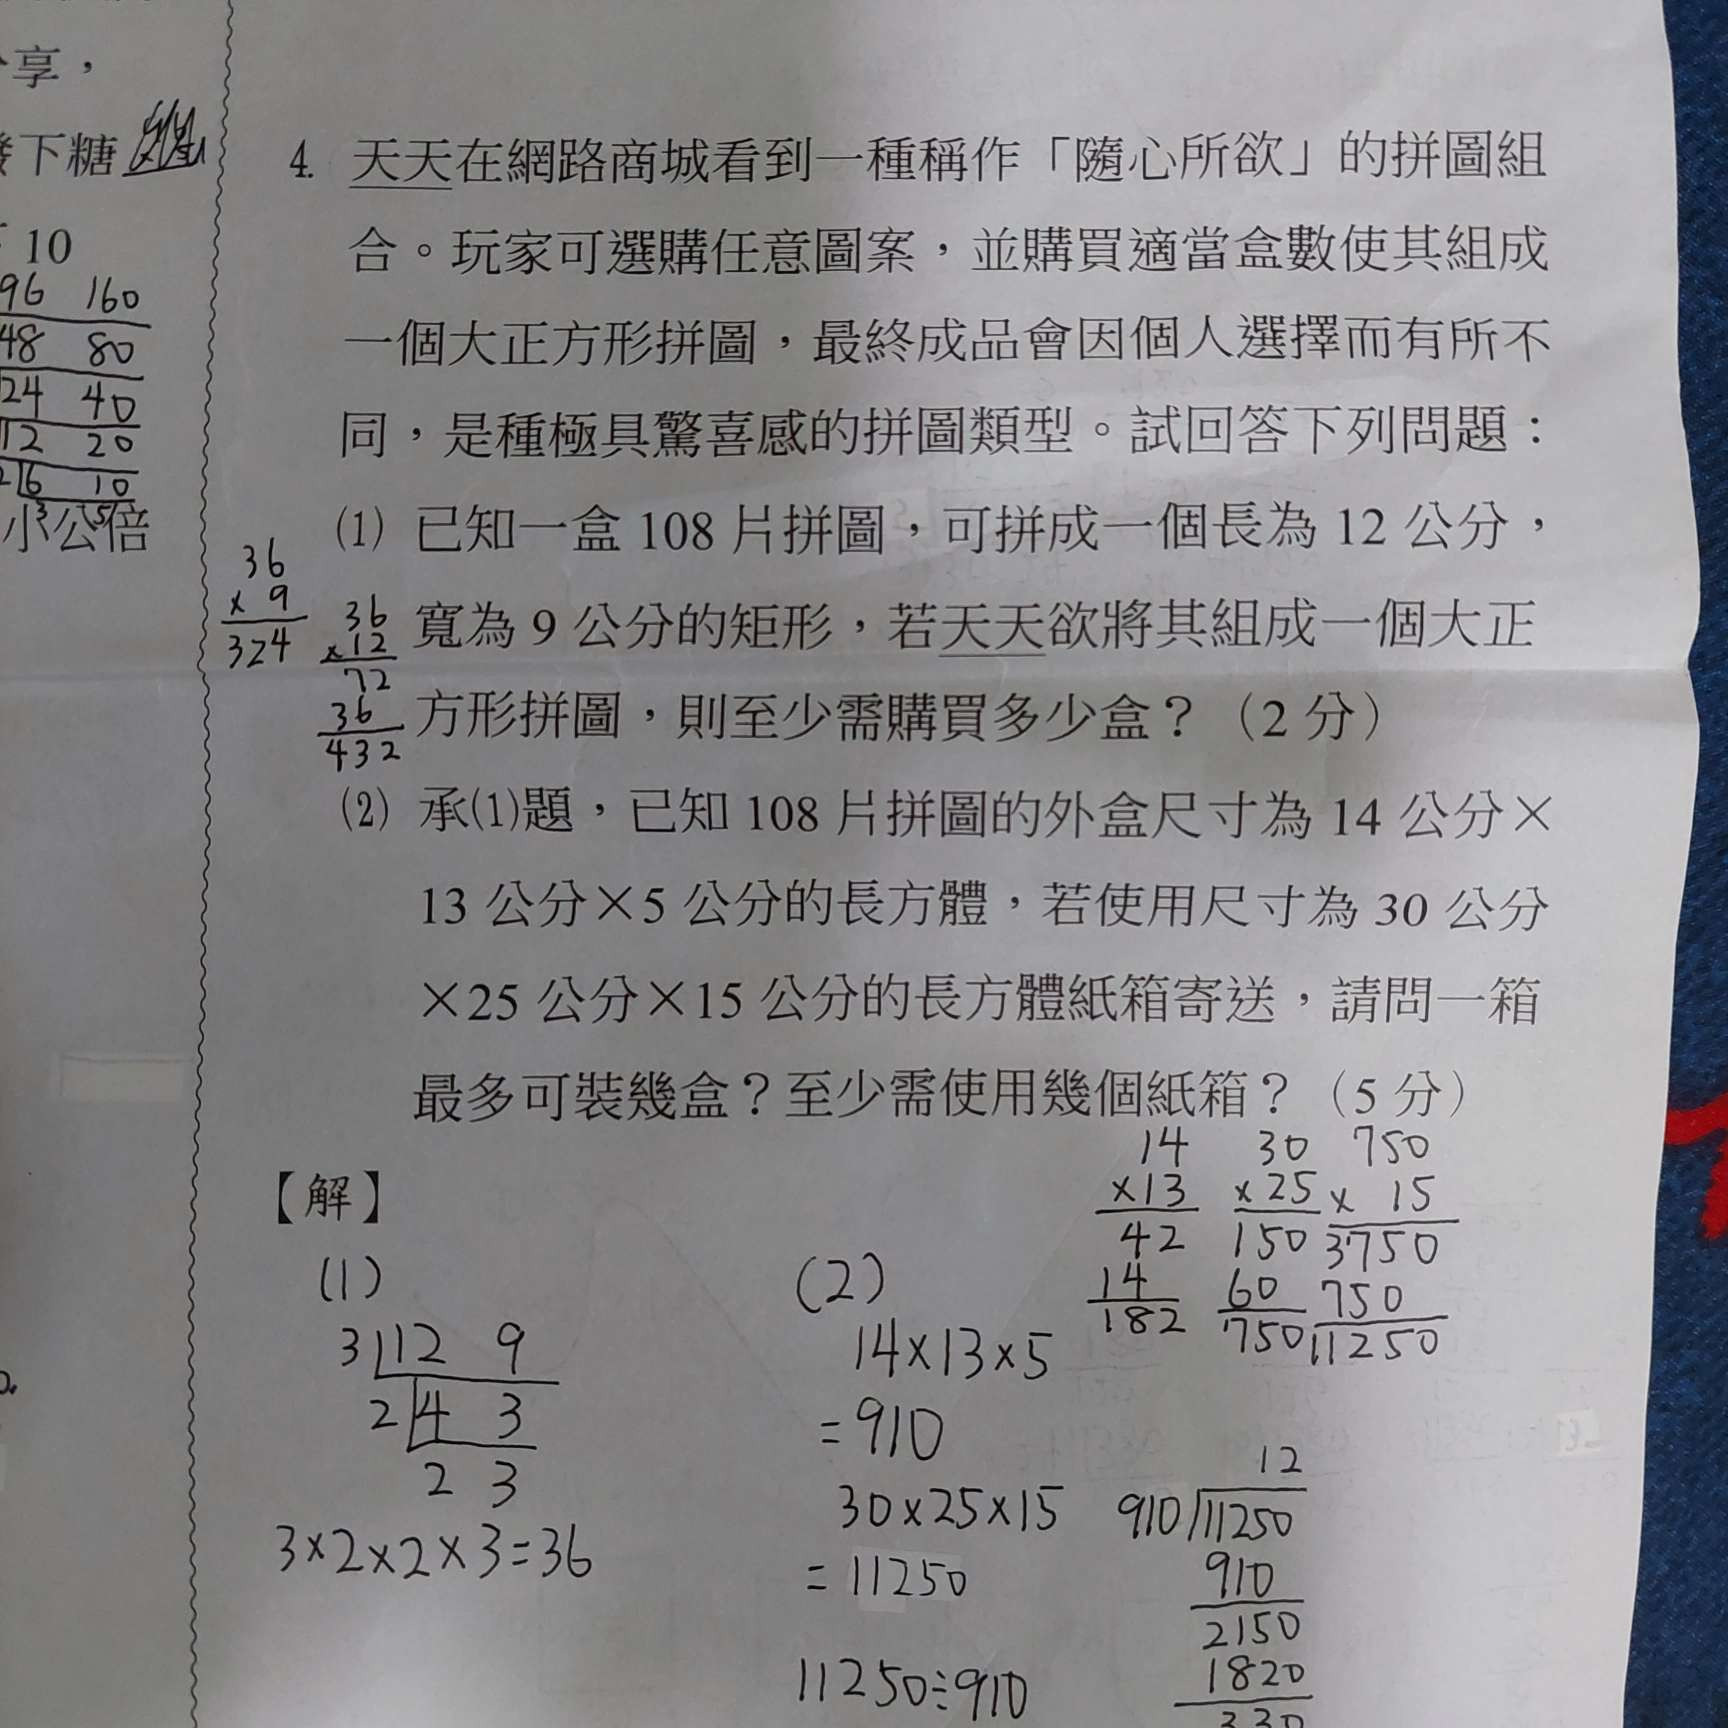 享，
下糖
10
96 160
48 80
24 40
12 20
2 6 10
3 5
小公倍
4. 天天在網路商城看到一種稱作「隨心所欲」的拼圖組
合。玩家可選購任意圖案，並購買適當盒數使其組成
一個大正方形拼圖，最終成品會因個人選擇而有所不
同，是種極具驚喜感的拼圖類型。試回答下列問題：
⑴ 已知一盒 108 片拼圖，可拼成一個長為 12 公分，
寬為 9 公分的矩形，若天天欲將其組成一個大正
方形拼圖，則至少需購買多少盒？（2 分）
36
× 9
324
36
×12
72
36
432
⑵ 承⑴題，已知 108 片拼圖的外盒尺寸為 14 公分×
13 公分×5 公分的長方體，若使用尺寸為 30 公分
×25 公分×15 公分的長方體紙箱寄送，請問一箱
最多可裝幾盒？至少需使用幾個紙箱？（5 分）
【解】
(1)
3 12 9
2 4 3
2 3
3×2×2×3=36
(2)
14×13×5
=910
30×25×15
=11250
11250÷910
14
×13
42
14
182
30
×25
150
60
750
750
× 15
3750
750
11250
12
910 11250
910
2150
1820
330